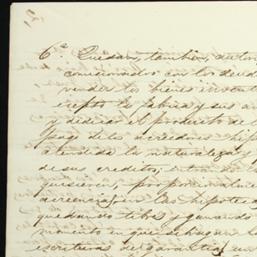 6ª Quedan, tambien, autor
comisionados con los deudo
vender los bienes invent
cepto la fabrica y sus a
y dedicar el producto de l
pago de los acreedores hip
atendida la naturaleza y
de sus creditos; entrando
quisieren, proporcionalmen
acreencia, en las hipoteca
quedando libre y ganando
momento en que se hagan l
escrituras de garantia, un